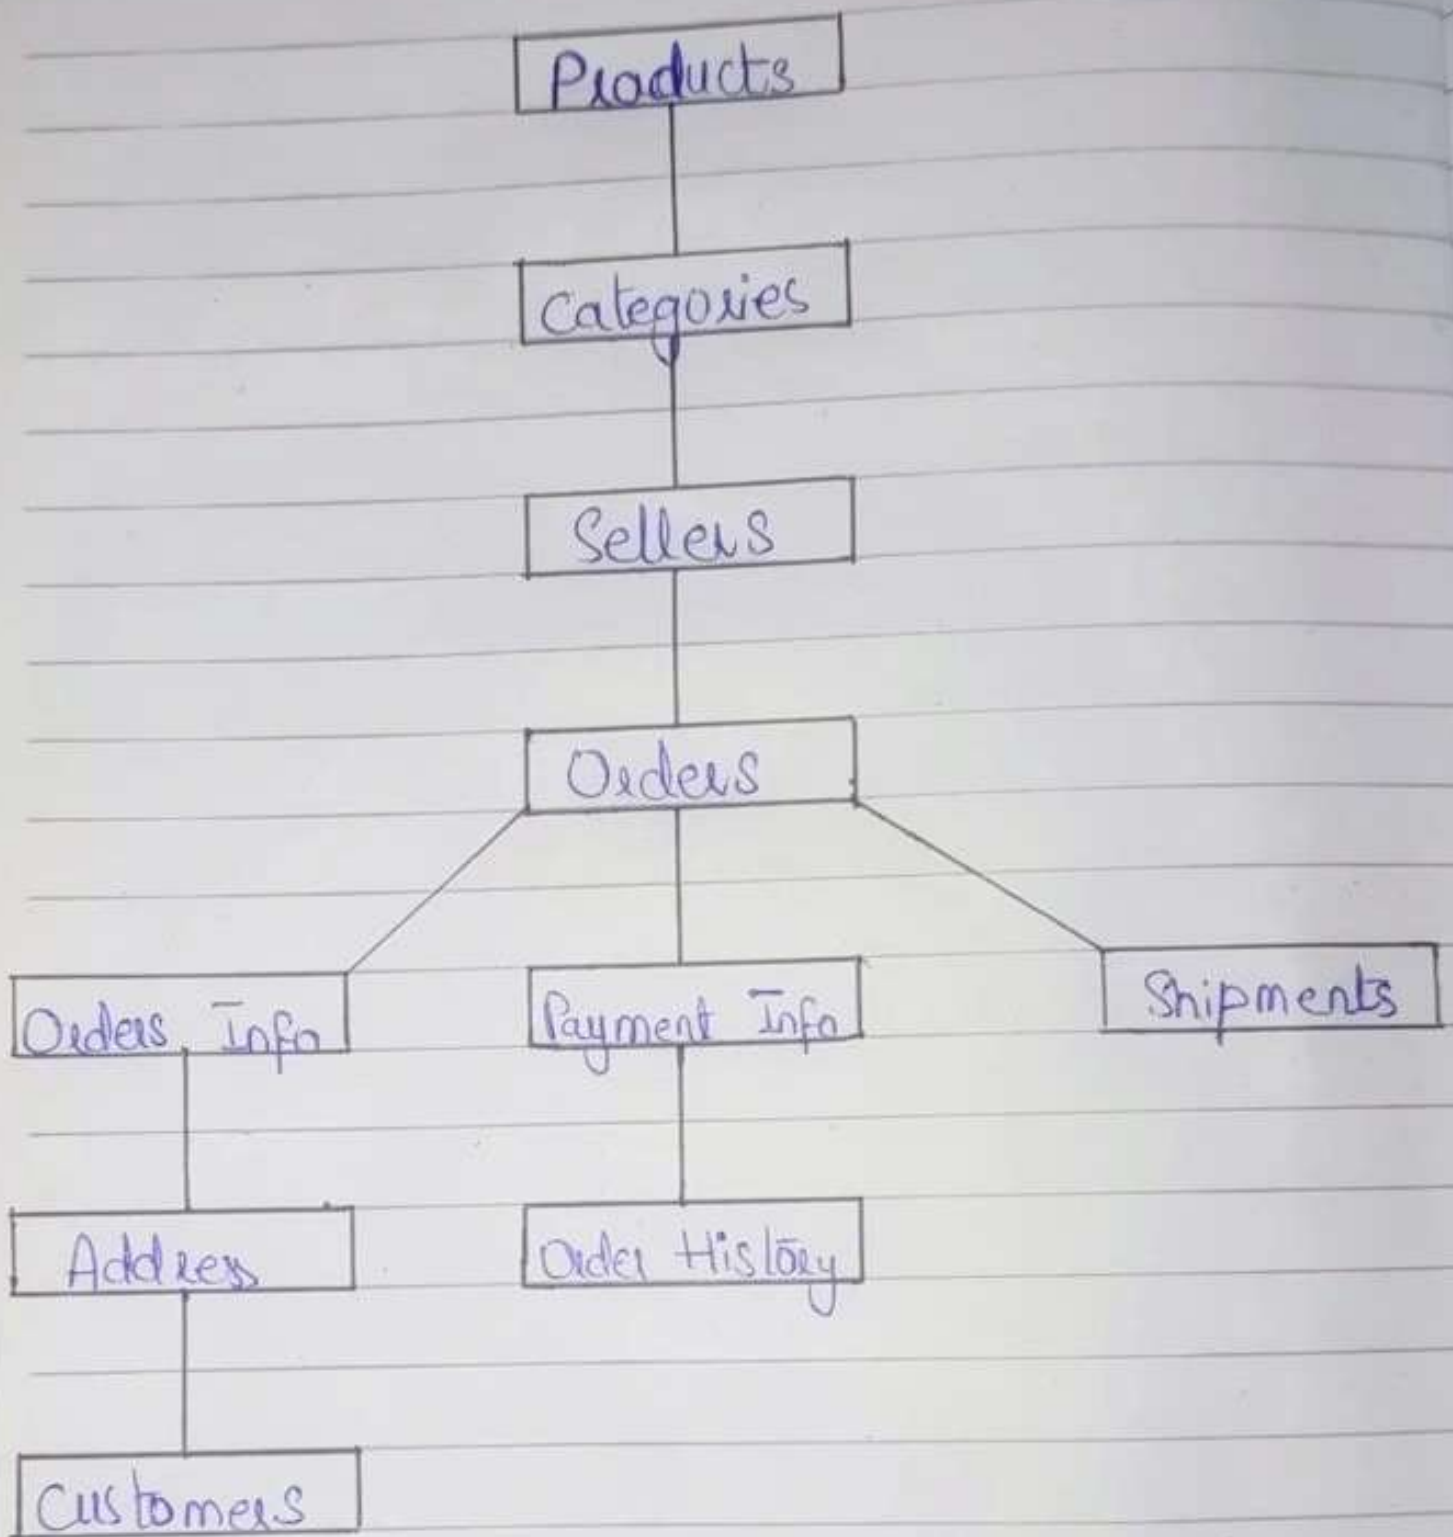 Products
Categories
Sellers
Orders
Orders Info
Payment Info
Shipments
Address
Order History
Customers